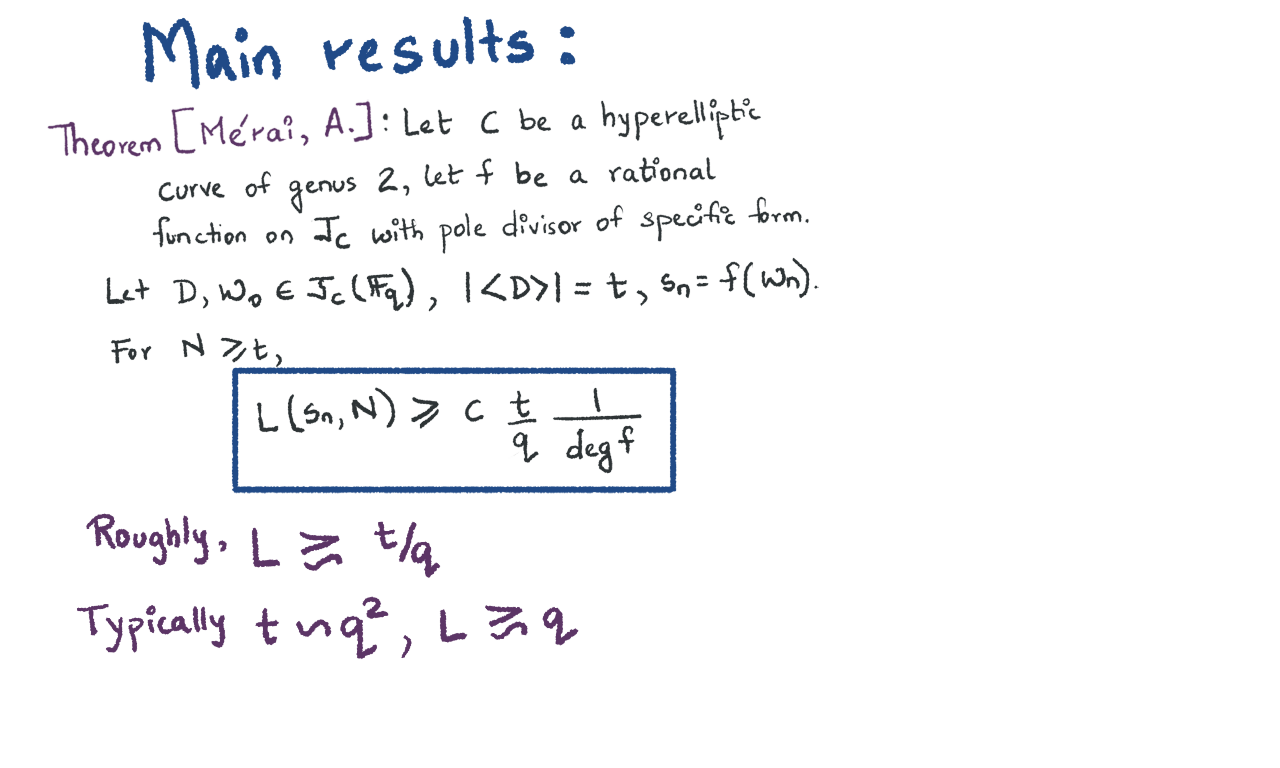 Main results:
Theorem [Mérai, A.]: Let C be a hyperelliptic
curve of genus 2, let f be a rational
function on J_C with pole divisor of specific form.
Let D, W_0 ∈ J_C(𝔽_q), |<D>| = t, s_n = f(W_n).
For N ⩾ t,
L(s_n, N) ⩾ c t/q 1/deg f
Roughly, L ≳ t/q
Typically t ~ q², L ≳ q